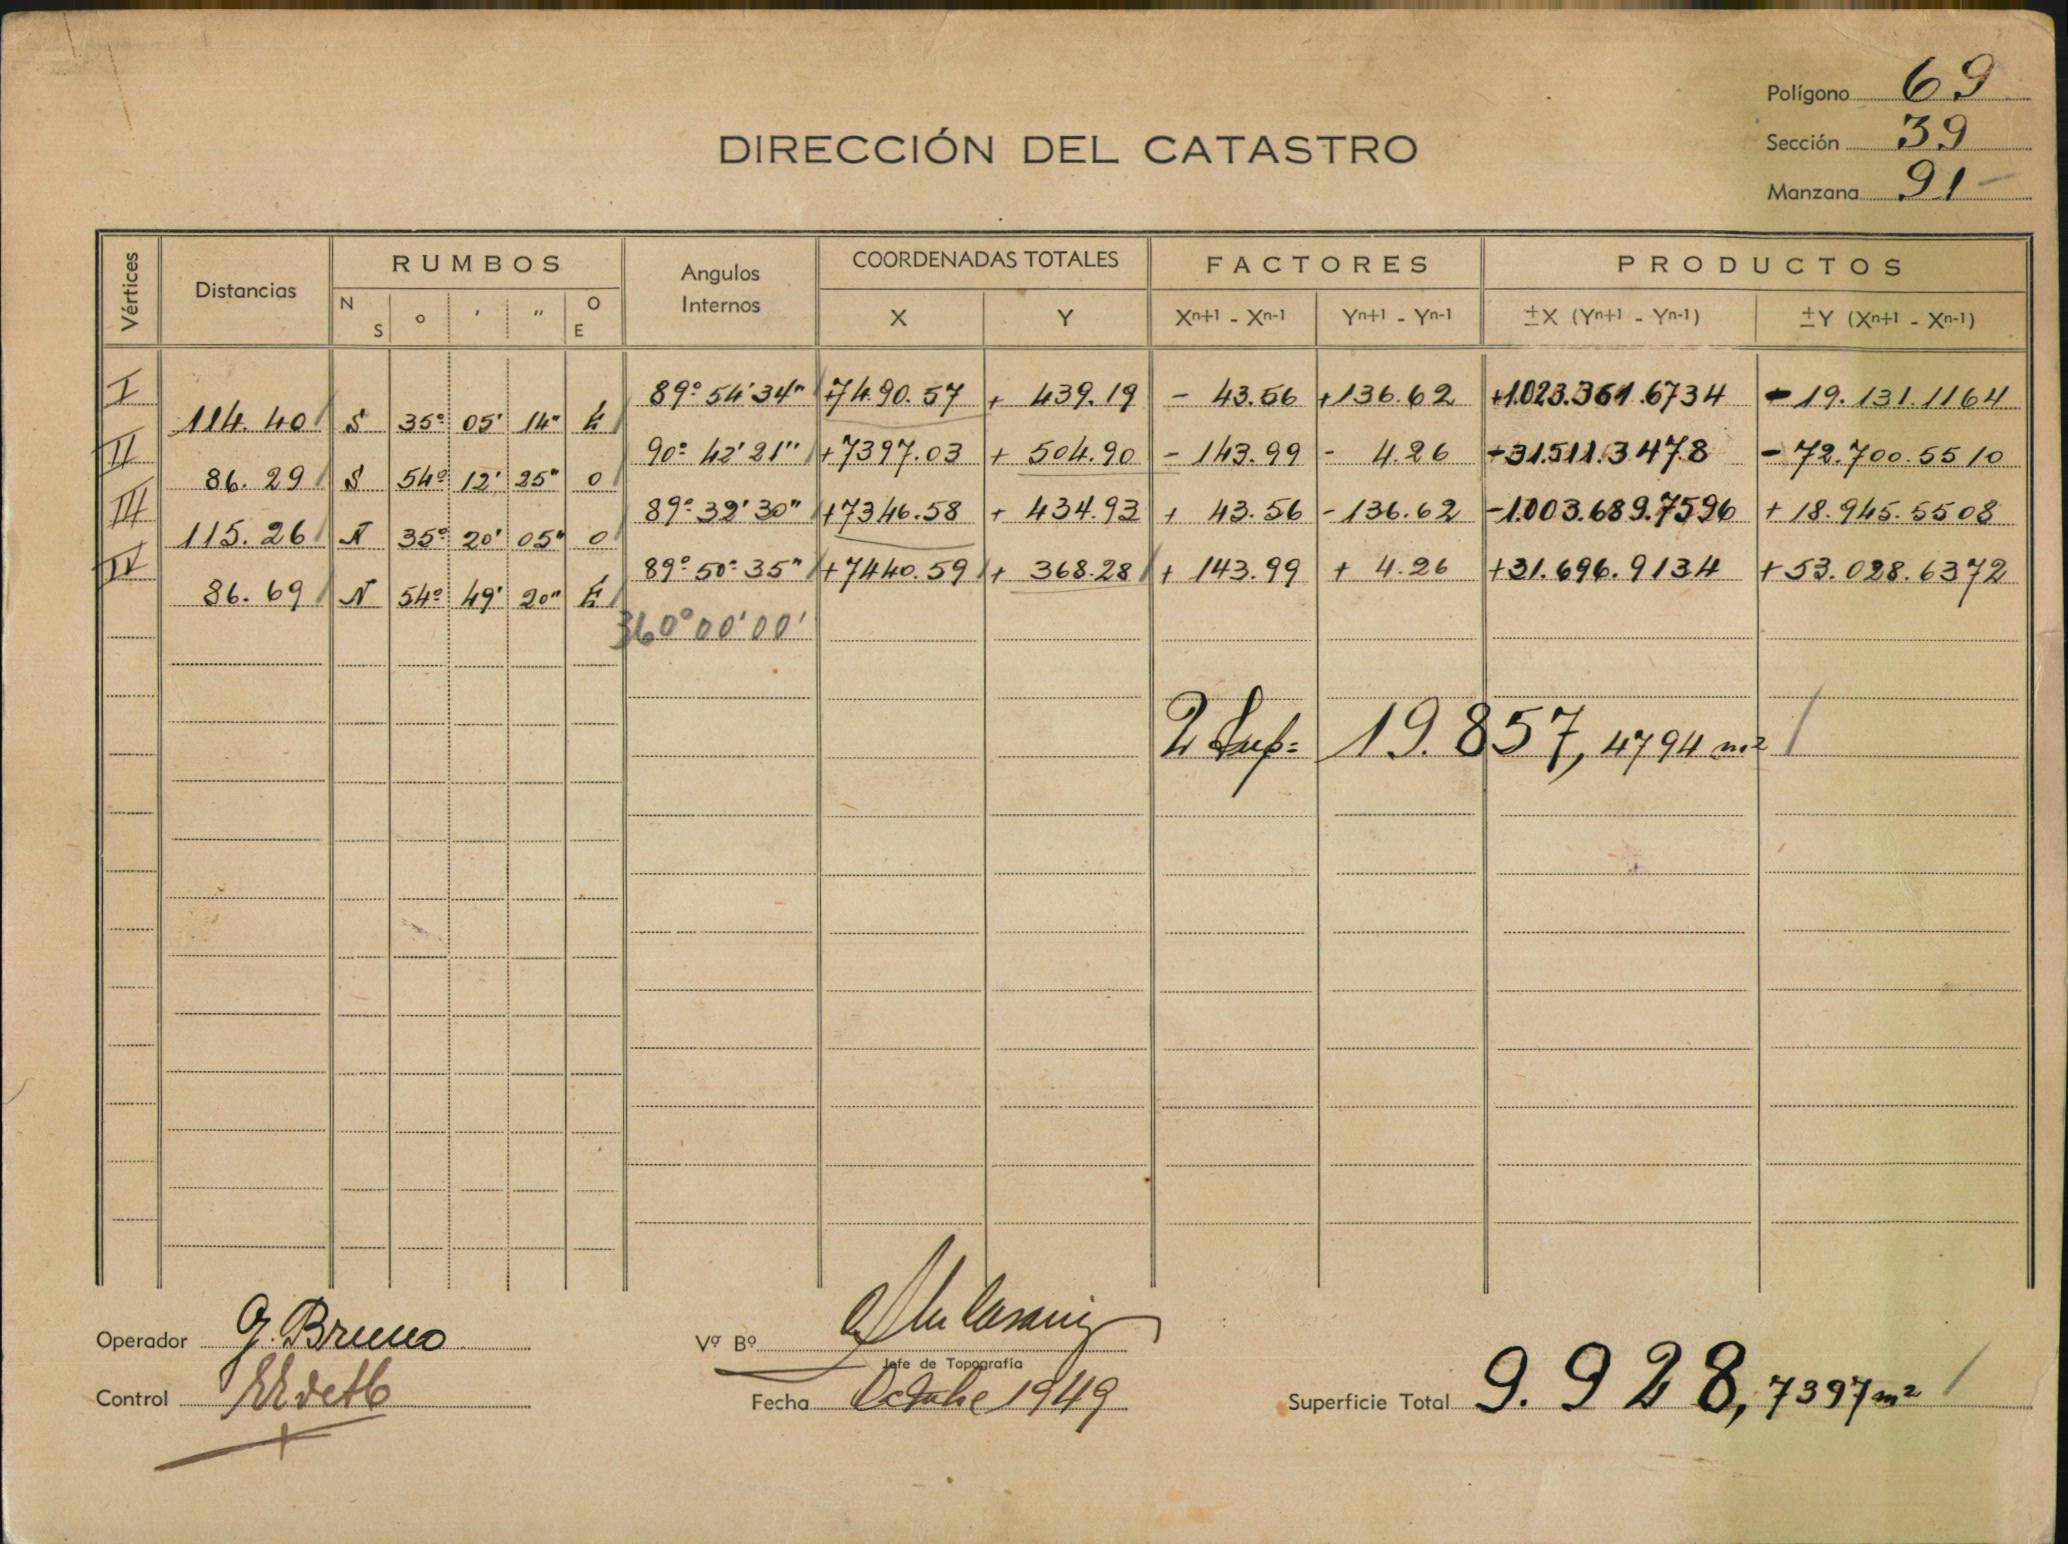 Polígono 69
Sección 39
Manzana 91
DIRECCIÓN DEL CATASTRO
Vértices Distancias RUMBOS Angulos Internos COORDENADAS TOTALES FACTORES PRODUCTOS
N S o ' " O E X Y Xⁿ⁺¹ - Xⁿ⁻¹ Yⁿ⁺¹ - Yⁿ⁻¹ ±X (Yⁿ⁺¹ - Yⁿ⁻¹) ±Y (Xⁿ⁺¹ - Xⁿ⁻¹)
I 89° 54' 34" +7490.57 + 439.19 - 43.56 +136.62 +1.023.361.6734 - 19.131.1164
114.40 S 35° 05' 14" E
II 90° 42' 21" +7397.03 + 504.90 - 143.99 - 4.26 -31.511.3478 - 72.700.5510
86.29 S 54° 12' 25" O
III 89° 32' 30" +7346.58 + 434.93 + 43.56 -136.62 -1.003.689.7596 + 18.945.5508
115.26 N 35° 20' 05" O
IV 89° 50' 35" +7440.59 + 368.28 + 143.99 + 4.26 +31.696.9134 + 53.028.6372
86.69 N 54° 49' 20" E
360°00'00'
2 Sup= 19.857,4794 m²
Operador G. Bruno
Vº Bº
Jefe de Topografía
Control
Fecha Octubre 1949
Superficie Total 9.928,7397 m²